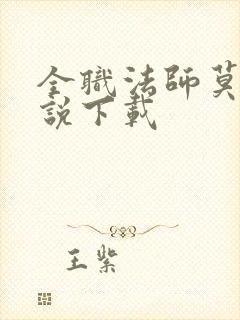 全職法師莫
說下載
王紫